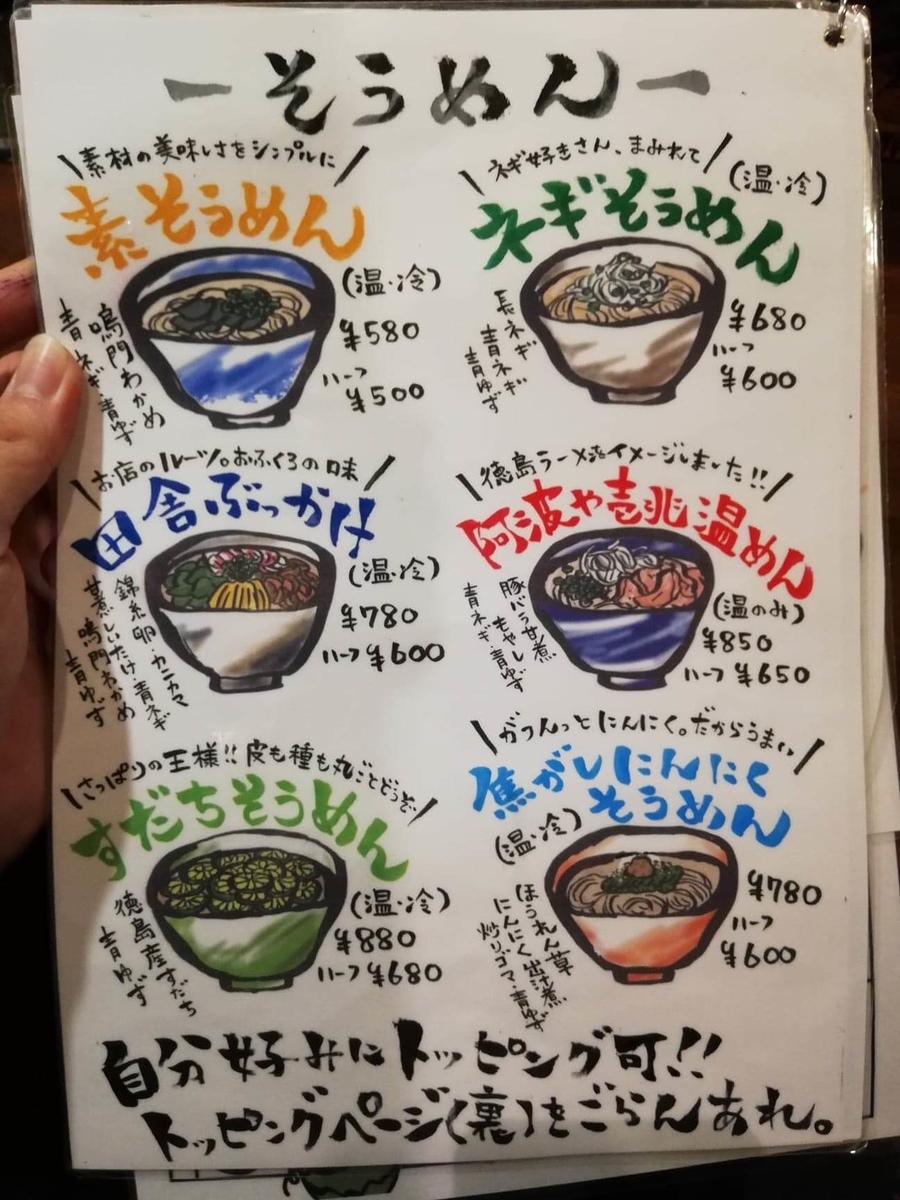 ーそうめんー
素材の美味しさをシンプルに
素そうめん
(温・冷)
¥580
ハーフ
¥500
鳴門わかめ
青ネギ・青ゆず
ネギ好きさん、まみれて
(温・冷)
ネギそうめん
¥680
ハーフ
¥600
長ネギ
青ネギ
青ゆず
お店のルーツ。おふくろの味
田舎ぶっかけ
(温・冷)
¥780
ハーフ ¥600
錦糸卵・カニカマ
甘煮しいたけ・青ネギ
鳴門わかめ
青ゆず
徳島ラーメンをイメージしました!!
阿波や壱兆温めん
(温のみ)
¥850
ハーフ ¥650
豚バラ甘煮
もやし
青ネギ・青ゆず
さっぱりの王様!!皮も種も丸ごとどうぞ
すだちそうめん
(温・冷)
¥880
ハーフ ¥680
徳島産すだち
青ゆず
ガツんっとにんにく。だからうまい
焦がしにんにく
そうめん
(温・冷)
¥780
ハーフ
¥600
ほうれん草
にんにく出汁煮
炒りゴマ・青ゆず
自分好みにトッピング可!!
トッピングページ(裏)をごらんあれ。